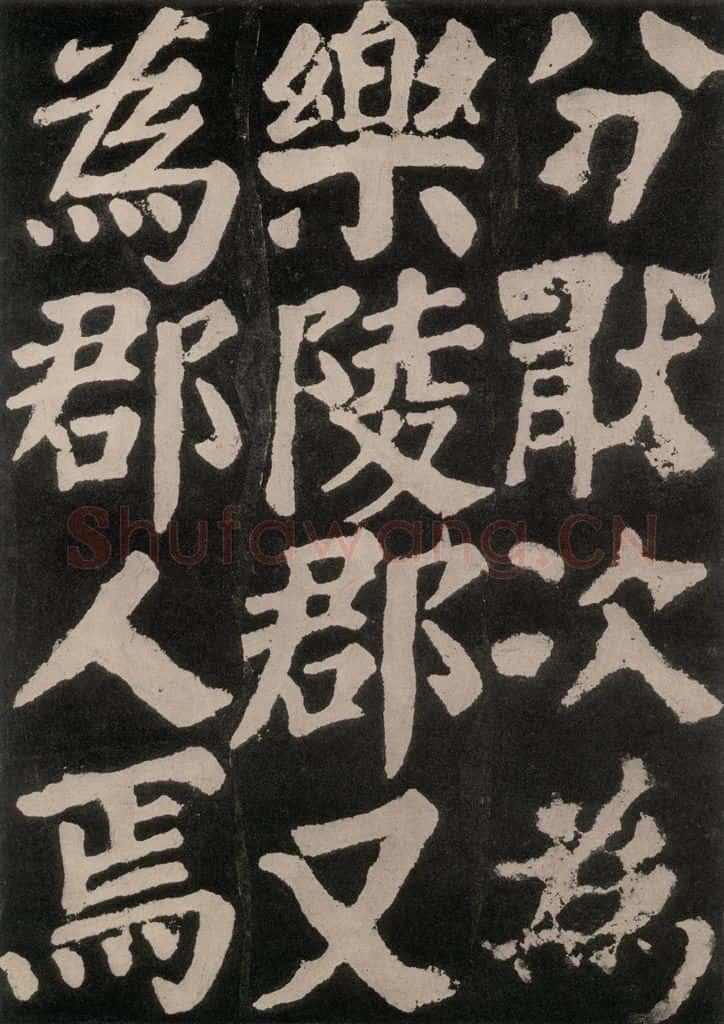 分猒次為
樂陵郡又
為郡人焉
Shufawang.CN